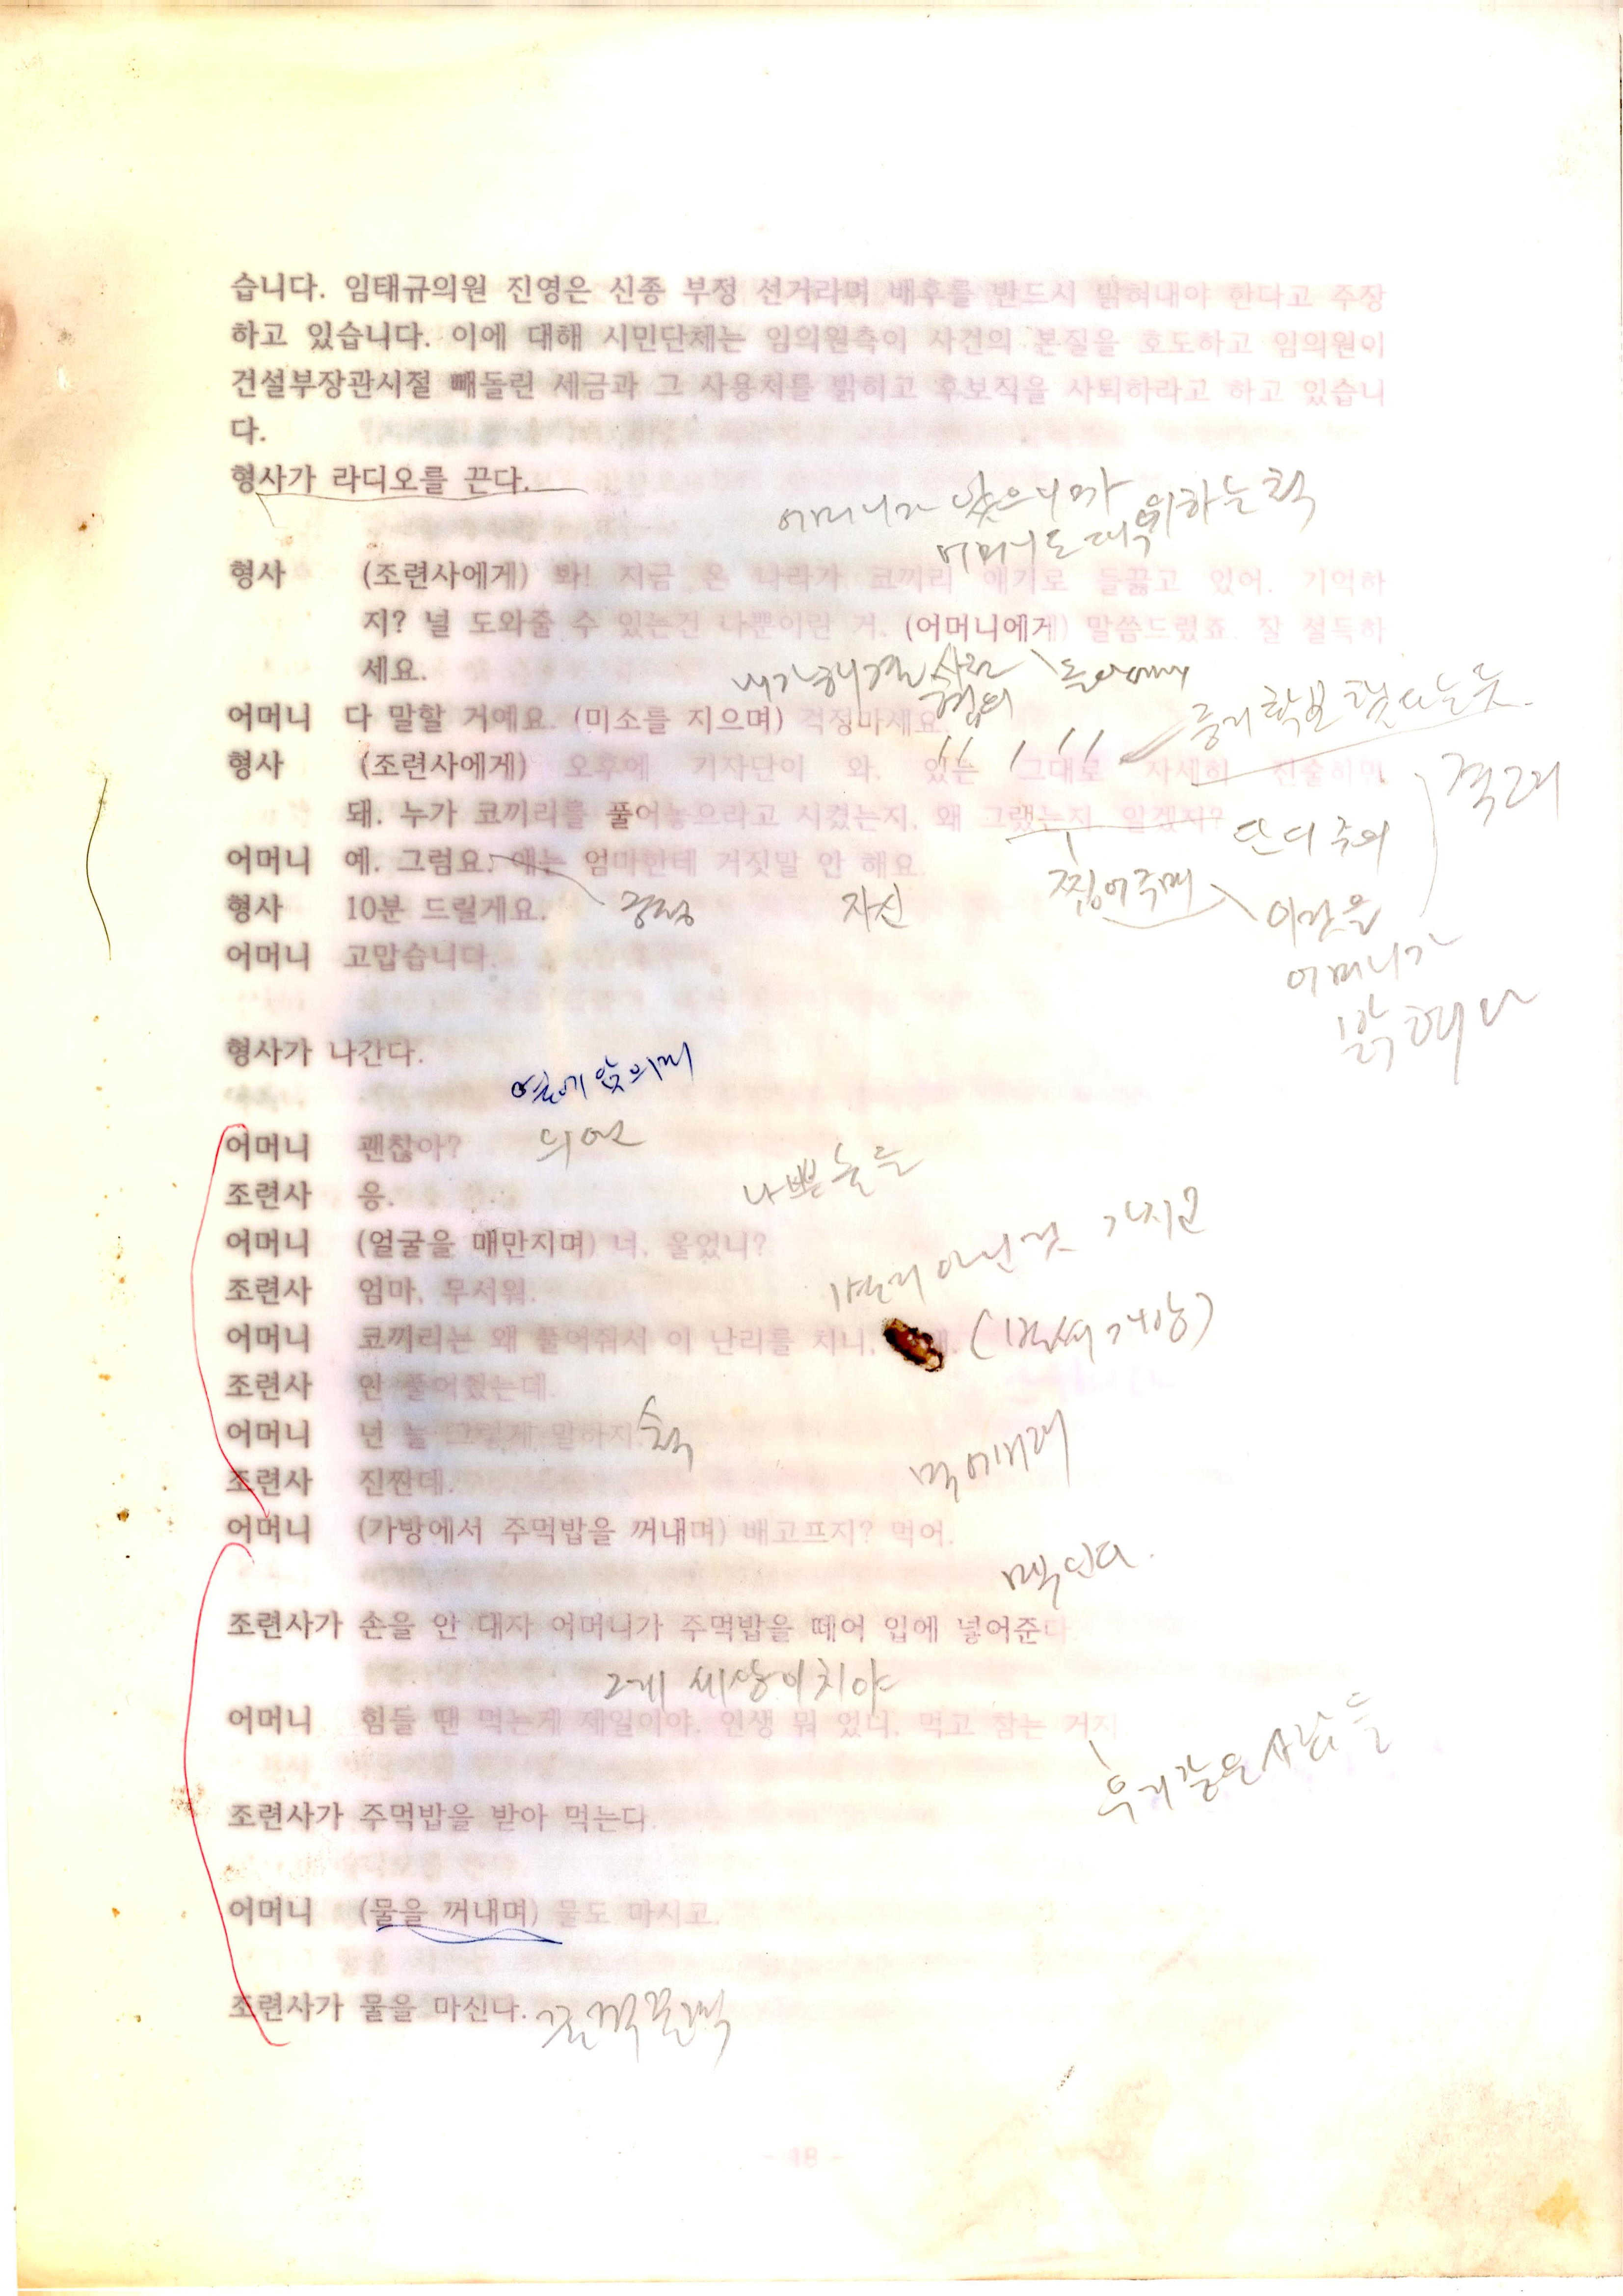 습니다. 임태규의원 진영은 신종 부정 선거라며 배후를 반드시 밝혀내야 한다고 주장
하고 있습니다. 이에 대해 시민단체는 임의원측이 사건의 본질을 호도하고 임의원이
건설부장관시절 빼돌린 세금과 그 사용처를 밝히고 후보직을 사퇴하라고 하고 있습니
다.
형사가 라디오를 끈다.
어머니가 왔으니까
어머니도 대우 위하는 척
형사 (조련사에게) 봐! 지금 온 나라가 코끼리 얘기로 들끓고 있어. 기억하
지? 널 도와줄 수 있는건 나뿐이란 거. (어머니에게) 말씀드렸죠. 잘 설득하
세요.
내가 해결
어머니 다 말할 거예요. (미소를 지으며) 걱정마세요.
증거 확보 했다는 듯.
형사 (조련사에게) 오후에 기자단이 와. 있는 그대로 자세히 진술하면
돼. 누가 코끼리를 풀어놓으라고 시켰는지. 왜 그랬는지. 알겠지?
격려
단디 주의
어머니 예. 그럼요. 얘는 엄마한테 거짓말 안 해요.
찝어주며
형사 10분 드릴게요.
긍정 자신
이것을
어머니 고맙습니다.
어머니가
밝혀나
형사가 나간다.
옆에 앉으며
어머니 괜찮아?
위언
조련사 응.
나쁜 놈들
어머니 (얼굴을 매만지며) 너, 울었니?
조련사 엄마, 무서워.
별거 아닌 것 가지고
어머니 코끼리는 왜 풀어줘서 이 난리를 치니,
조련사 안 풀어줬는데.
어머니 넌 늘 그렇게 말하지.
척
조련사 진짠데.
어머니 (가방에서 주먹밥을 꺼내며) 배고프지? 먹어.
멕인다.
조련사가 손을 안 대자 어머니가 주먹밥을 떼어 입에 넣어준다
그게 세상이치야
어머니 힘들 땐 먹는게 제일이야. 인생 뭐 있니, 먹고 참는 거지
우리같은 사람들
조련사가 주먹밥을 받아 먹는다.
어머니 (물을 꺼내며) 물도 마시고.
조련사가 물을 마신다.
꿀꺽꿀꺽
- 18 -